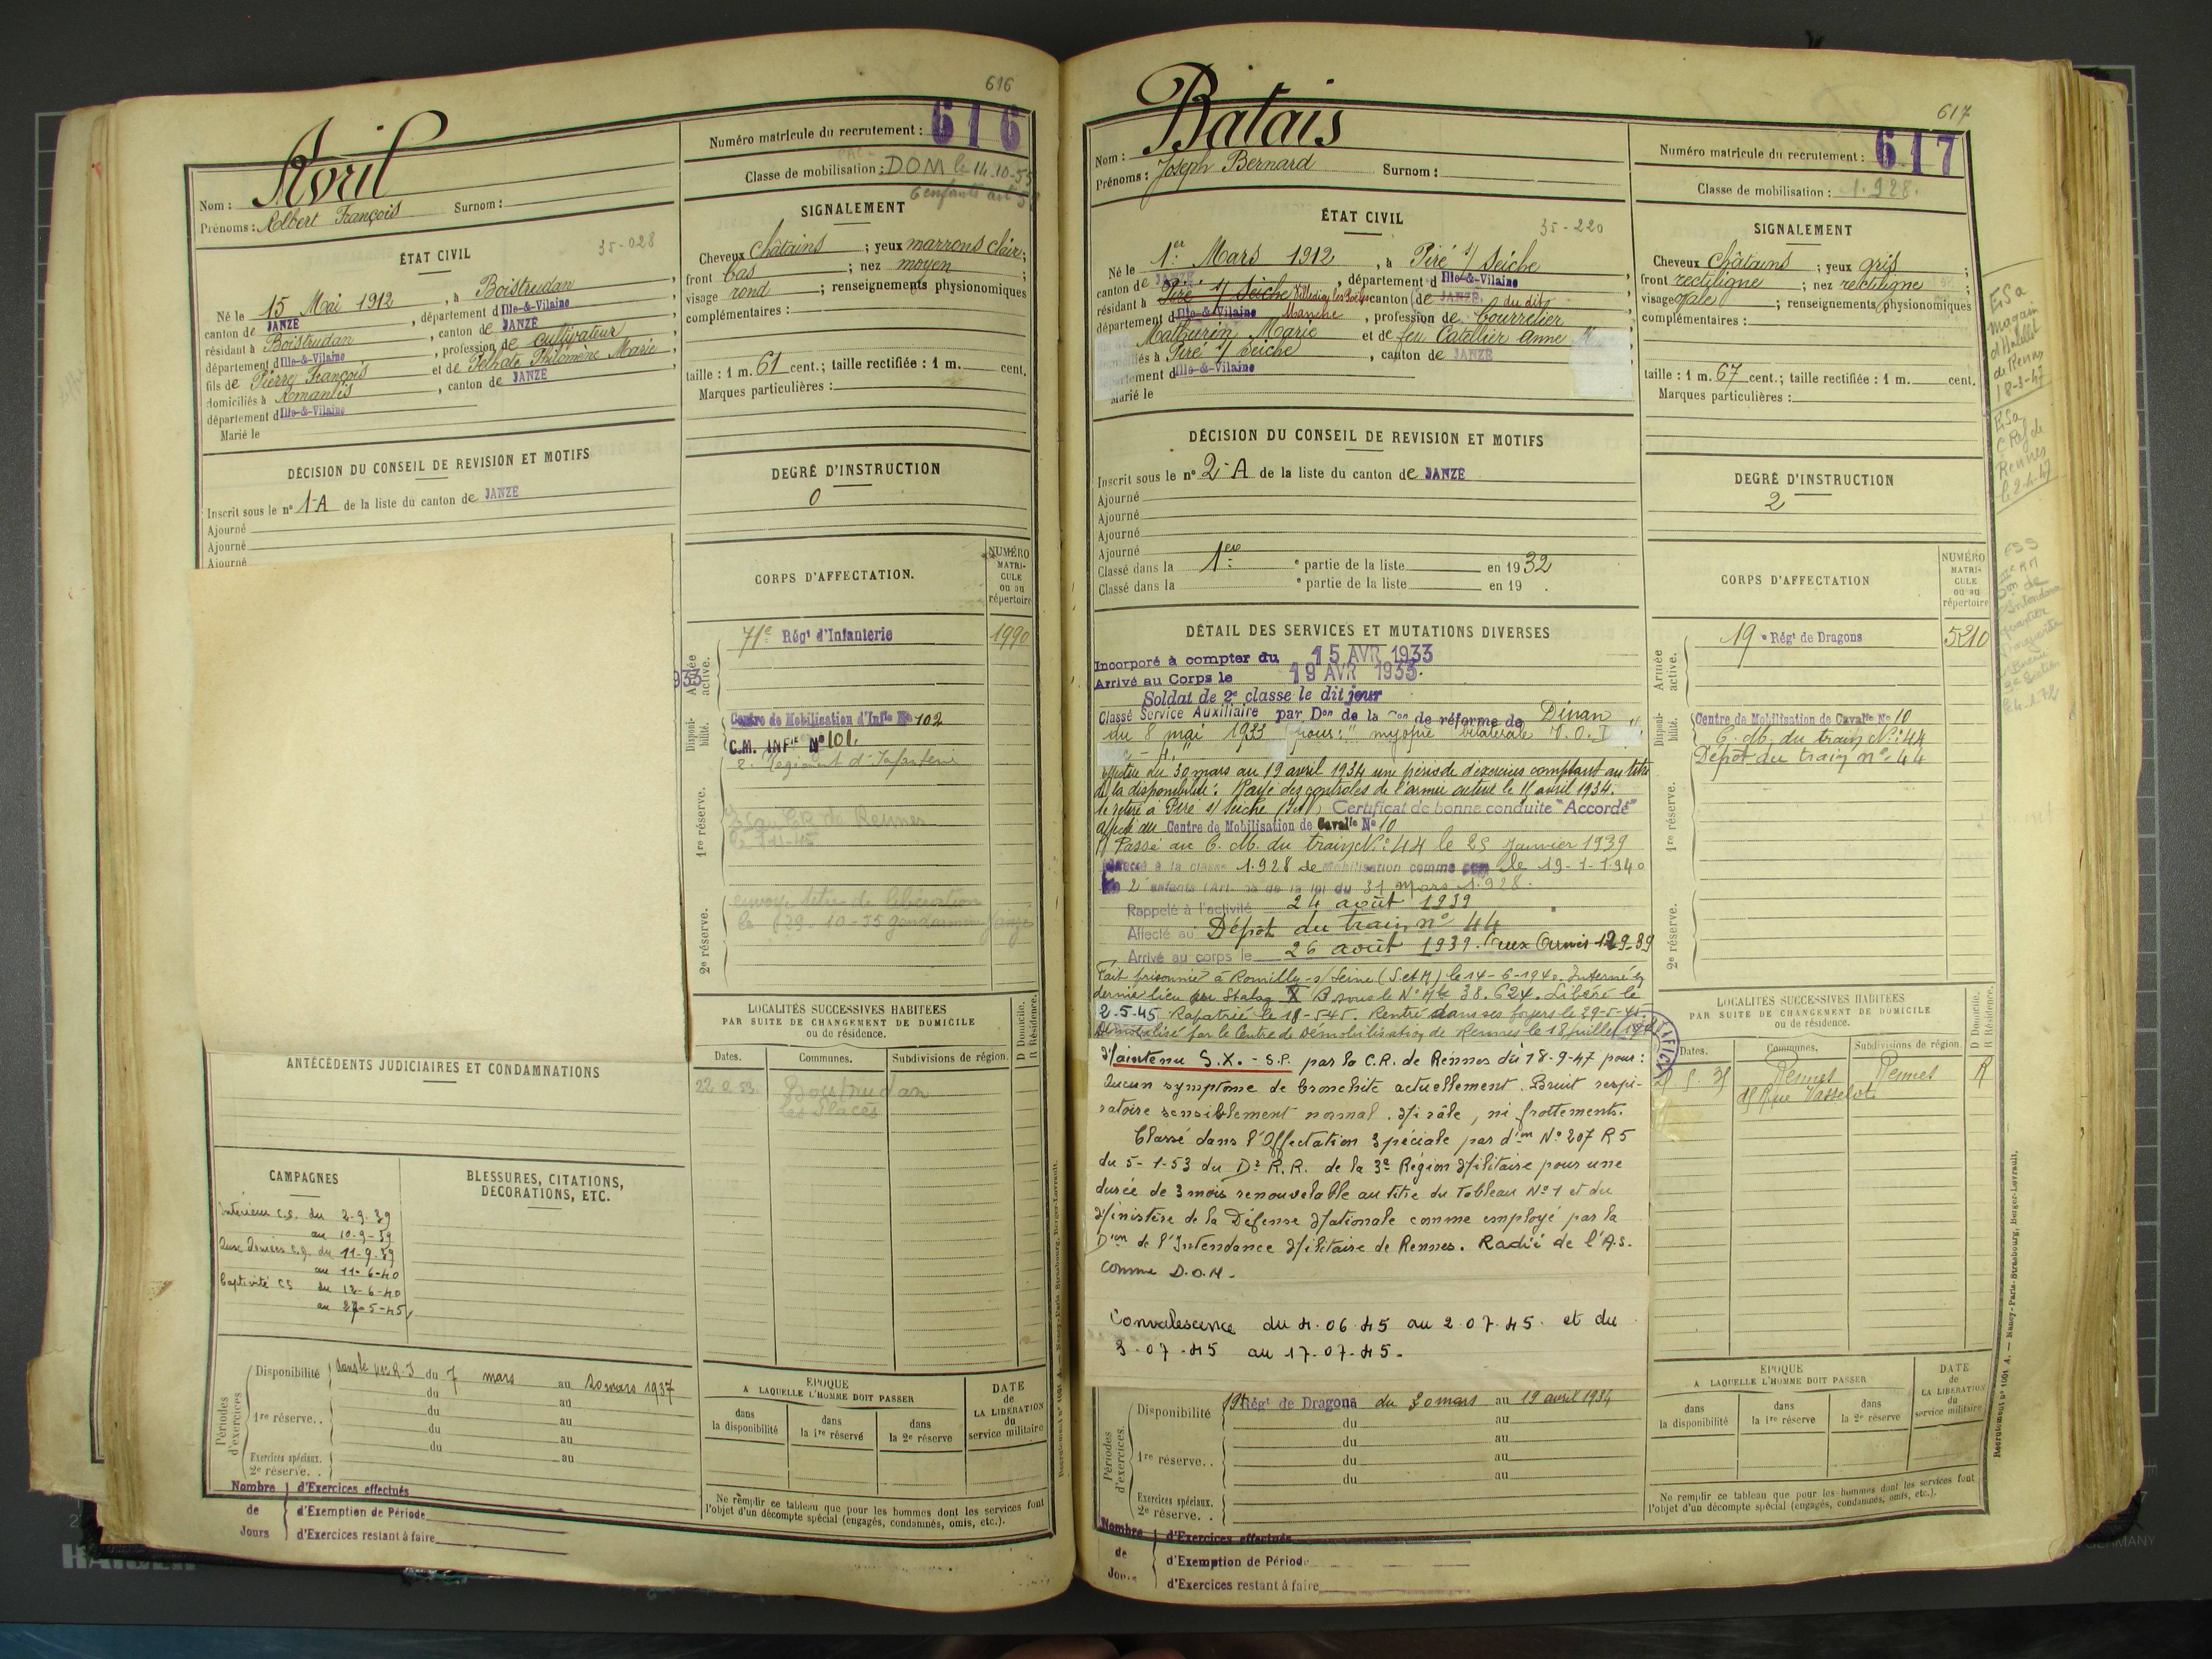 616
Avril
Nom :
Prénoms : Albert François Surnom :
Numéro matricule du recrutement : 616
Classe de mobilisation : DOM le 14.10-55
6 enfants
ÉTAT CIVIL
35-028
Né le 15 Mai 1912, à Boistrudan,
canton de JANZÉ, département d Ille-&-Vilaine,
résidant à Boistrudan, canton de JANZÉ,
département d Ille-&-Vilaine, profession de cultivateur,
fils de Pierre François et de Philomène Marie,
domiciliés à Amanlis, canton de JANZÉ,
département d Ille-&-Vilaine
Marié le
SIGNALEMENT
Cheveux châtains ; yeux marrons clair ;
front bas ; nez moyen ;
visage rond ; renseignements physionomiques
complémentaires :
taille : 1 m. 61 cent.; taille rectifiée : 1 m. cent.
Marques particulières :
DÉCISION DU CONSEIL DE REVISION ET MOTIFS
Inscrit sous le n° 1-A de la liste du canton de JANZÉ
Ajourné
Ajourné
Ajourné
DEGRÉ D'INSTRUCTION
0
CORPS D'AFFECTATION.
NUMÉRO MATRICULE ou au répertoire
Armée active.
933
71e Régt d'Infanterie 1990
Disponibilité.
Centre de Mobilisation d'Infie No 102
C.M. INFie No 101.
2. Régiment d'Infanterie
1re réserve.
2e réserve.
envoyé lettre de libération
LOCALITÉS SUCCESSIVES HABITÉES
PAR SUITE DE CHANGEMENT DE DOMICILE
ou de résidence.
D Domicile.
R Résidence.
Dates. Communes. Subdivisions de région.
Boistrudan
les Places
ANTÉCÉDENTS JUDICIAIRES ET CONDAMNATIONS
CAMPAGNES
Intérieur C.S. du 2-9-39
au 10-9-39
Aux Armées C.S. du 11-9-39
au 11-6-40
Captivité CS du 12-6-40
au 27-5-45
BLESSURES, CITATIONS,
DÉCORATIONS, ETC.
Périodes d'exercices
Disponibilité dans le R.I du 7 mars au 20 mars 1937
du au
1re réserve.. du au
du au
Exercices spéciaux. au
2e réserve. .
Nombre de Jours
d'Exercices effectués
d'Exemption de Période
d'Exercices restant à faire
ÉPOQUE
A LAQUELLE L'HOMME DOIT PASSER
dans la disponibilité
dans la 1re réserve
dans la 2e réserve
DATE de LA LIBÉRATION du service militaire
Ne remplir ce tableau que pour les hommes dont les services font
l'objet d'un décompte spécial (engagés, condamnés, omis, etc.).
617
Batais
Nom :
Prénoms : Joseph Bernard Surnom :
Numéro matricule du recrutement : 617
Classe de mobilisation : 1.928.
ÉTAT CIVIL
35-220
Né le 1er Mars 1912, à Piré s/ Seiche,
canton de JANZÉ, département d Ille-&-Vilaine
résidant à Piré s/ Seiche Villedieu les Poêles canton de JANZÉ, du dit
département d Ille-&-Vilaine Manche, profession de bourrelier
Mathurin Marie et de feu Catellier Anne M
domiciliés à Piré s/ Seiche, canton de JANZÉ
département d Ille-&-Vilaine
Marié le
SIGNALEMENT
Cheveux châtains ; yeux gris ;
front rectiligne ; nez rectiligne ;
visage ovale ; renseignements physionomiques
complémentaires :
taille : 1 m. 67 cent.; taille rectifiée : 1 m. cent.
Marques particulières :
DÉCISION DU CONSEIL DE REVISION ET MOTIFS
Inscrit sous le n° 2-A de la liste du canton de JANZÉ
Ajourné
Ajourné
Ajourné
Ajourné
Classé dans la 1ere e partie de la liste en 1932
Classé dans la e partie de la liste en 19 .
DEGRÉ D'INSTRUCTION
2
DÉTAIL DES SERVICES ET MUTATIONS DIVERSES
Incorporé à compter du 15 AVR 1933
Arrivé au Corps le 19 AVR 1933.
Soldat de 2e classe le dit jour
Classé Service Auxiliaire par Don de la Con de réforme de Dinan
du 8 mai 1933 pour : "myopie bilatérale V.O.I
Effectué du 30 mars au 19 avril 1934 une période d'exercices comptant au titre
de la disponibilité. Rayé des contrôles de l'armée active le 15 avril 1934.
Se retire à Piré s/ Seiche (I et V) Certificat de bonne conduite "Accordé"
Affecté au Centre de Mobilisation de Cavalie No 10
Passé au C. M. du train No 44 le 25 Janvier 1939
à la classe 1.928 de mobilisation comme le 19-1-1940
2 enfants (Art. de la loi du 31 mars 1.928.
Rappelé à l'activité 24 août 1939
Affecté au Dépôt du train n° 44
Arrivé au corps le 26 août 1939. Aux Armées 12-9-39
Fait prisonnier à Romilly-s/Seine (S et M) le 14-6-1940. Interné en
dernier lieu au Stalag X B sous le No Mle 38.624. Libéré le
2-5-45 Rapatrié le 18-5-45. Rentré dans ses foyers le 29-5-45
Démobilisé par le Centre de Démobilisation de Rennes le 18 juillet 1945
Maintenu S.X. - S.P. par la C.R. de Rennes du 18-9-47 pour :
Aucun symptôme de bronchite actuellement. Bruit respi-
ratoire sensiblement normal. Ni râle, ni frottements.
Classé dans l'Affectation Spéciale par don No 207 R5
du 5-1-53 du Dr R.R. de la 3e Région Militaire pour une
durée de 3 mois renouvelable au titre du Tableau No 1 et du
Ministère de la Défense Nationale comme employé par la
Don de l'Intendance Militaire de Rennes. Radié de l'A.S.
comme D.O.M.
Convalescence du 4.06.45 au 2.07.45. et du
3-07-45 au 17-07-45.
CORPS D'AFFECTATION
NUMÉRO MATRICULE ou au répertoire
Armée active.
19e Régt de Dragons 5210
Disponibilité.
Centre de Mobilisation de Cavalie No 10
C. M. du train No: 44
Dépôt du train n° 44
1re réserve.
2e réserve.
LOCALITÉS SUCCESSIVES HABITÉES
PAR SUITE DE CHANGEMENT DE DOMICILE
ou de résidence.
D Domicile.
R Résidence.
Dates. Communes. Subdivisions de région
Rennes Rennes R
Rue Vasselot
Périodes d'exercices.
Disponibilité 19e Régt de Dragons du 30 mars au 19 avril 1934
du au
du au
1re réserve.. du au
du au
Exercices spéciaux.
2e réserve. .
Nombre de Jours
d'Exercices effectués
d'Exemption de Période
d'Exercices restant à faire
ÉPOQUE
A LAQUELLE L'HOMME DOIT PASSER
dans la disponibilité
dans la 1re réserve
dans la 2e réserve
DATE de LA LIBÉRATION du service militaire
Ne remplir ce tableau que pour les hommes dont les services font
l'objet d'un décompte spécial (engagés, condamnés, omis, etc.).
Recrutement N° 1001 A. — Nancy-Paris-Strasbourg, Berger-Levrault.